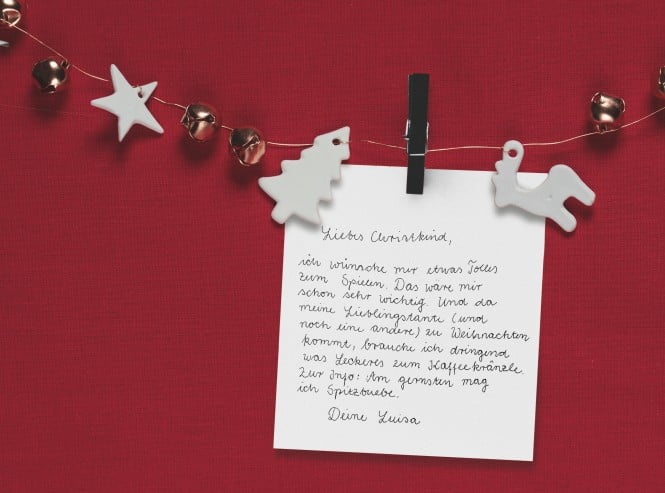 Liebes Christkind,
ich wünsche mir etwas Tolles
zum Spielen. Das wäre mir
schon sehr wichtig. Und da
meine Lieblingstante (und
noch eine andere) zu Weihnachten
kommt, brauche ich dringend
was Leckeres zum Kaffeekränzle.
Zur Info: Am gernsten mag
ich Spitzbuebe.
Deine Luisa